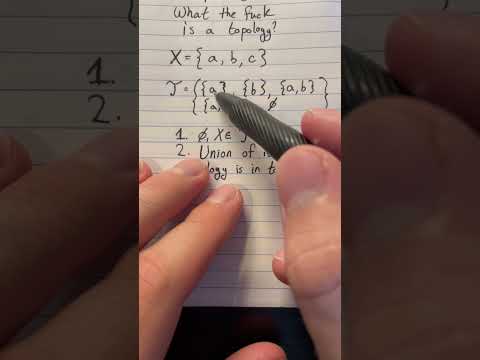 What the fuck
is a topology?
X = { a, b, c }
𝒯 = { {a}, {b}, {a,b}
{a, ∅ }
1. ∅, X ∈
2. Union of
is in
1.
2.